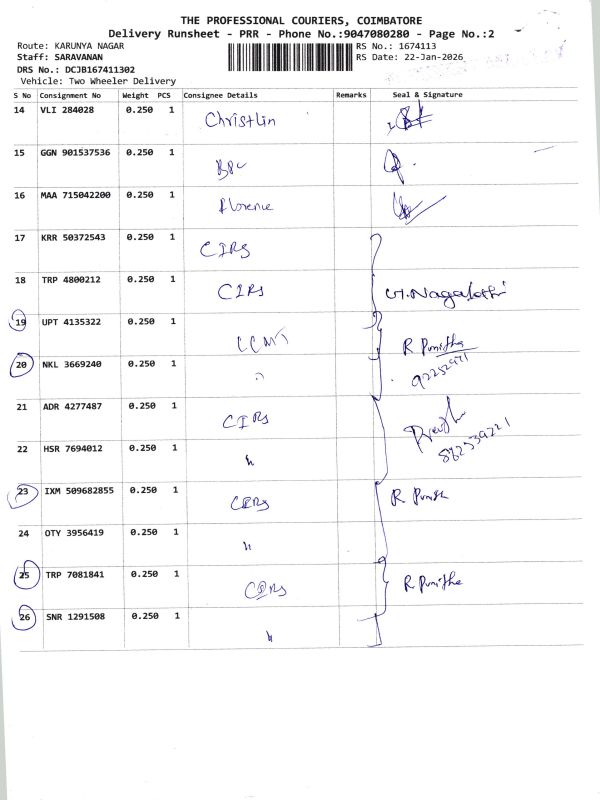 THE PROFESSIONAL COURIERS, COIMBATORE
Delivery Runsheet - PRR - Phone No.:9047080280 - Page No.:2
Route: KARUNYA NAGAR
RS No.: 1674113
Staff: SARAVANAN
RS Date: 22-Jan-2026
DRS No.: DCJB167411302
Vehicle: Two Wheeler Delivery
S No Consignment No Weight PCS Consignee Details Remarks Seal & Signature
14 VLI 284028 0.250 1 Christlin
15 GGN 901537536 0.250 1
16 MAA 715042200 0.250 1 Florence
17 KRR 50372543 0.250 1 CIRS
18 TRP 4800212 0.250 1 CIRS
19 UPT 4135322 0.250 1 R Punitha
20 NKL 3669240 0.250 1 "
21 ADR 4277487 0.250 1 CIRS
22 HSR 7694012 0.250 1 "
23 IXM 509682855 0.250 1 CIRS
24 OTY 3956419 0.250 1 "
25 TRP 7081841 0.250 1 CIRS R Punitha
26 SNR 1291508 0.250 1 "